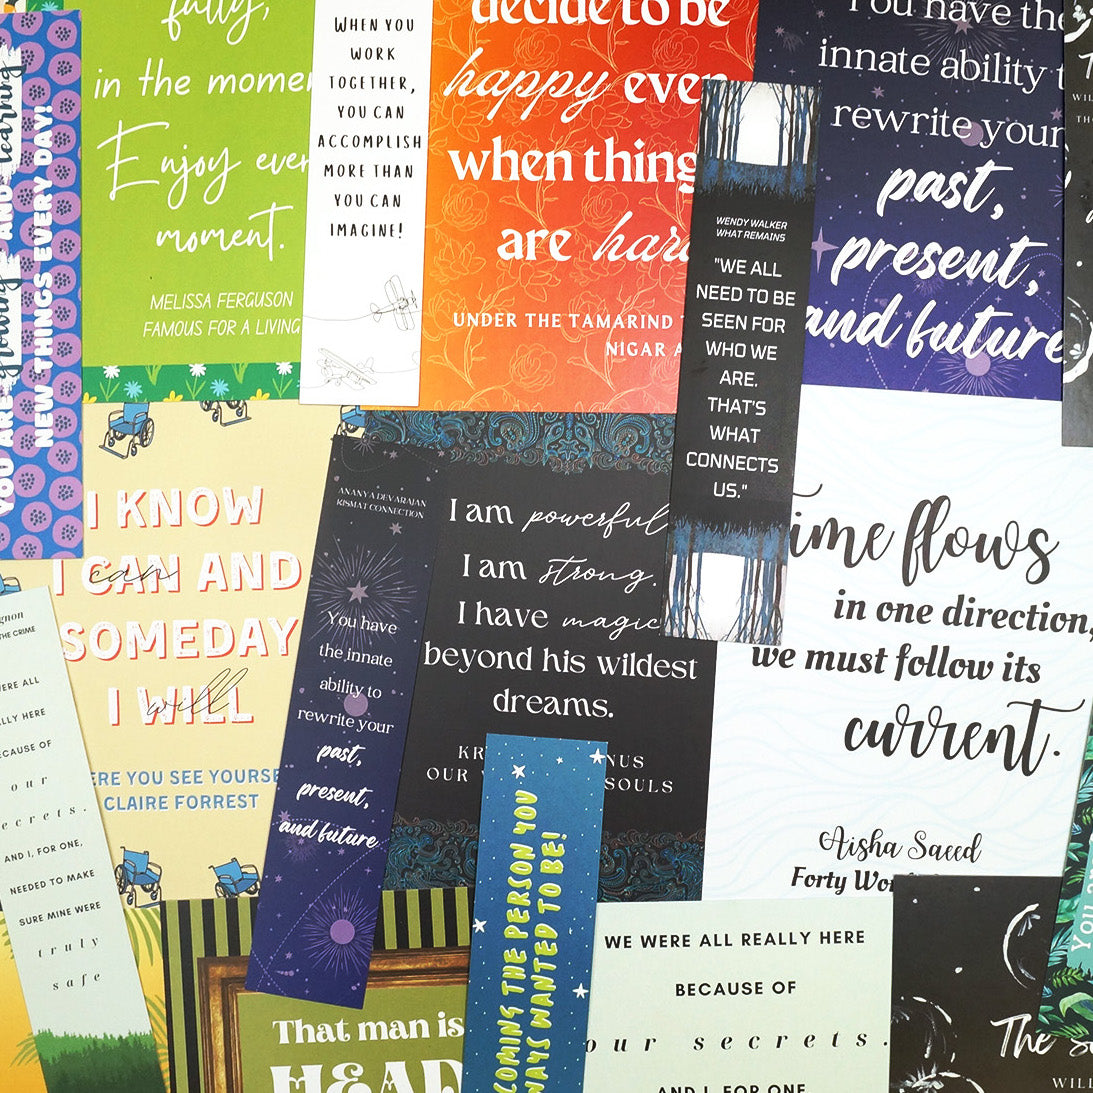 YOU ARE growing AND learning
NEW THINGS EVERY DAY!
fully,
in the
Enjoy
moment.
MELISSA FERGUSON
FAMOUS FOR A LIVING
WHEN YOU
WORK
TOGETHER,
YOU CAN
ACCOMPLISH
MORE THAN
YOU CAN
IMAGINE!
decide to be
happy even
when things
are
UNDER THE TAMARIND
NIGAR
WENDY WALKER
WHAT REMAINS
"WE ALL
NEED TO BE
SEEN FOR
WHO WE
ARE.
THAT'S
WHAT
CONNECTS
US."
You have the
innate ability
rewrite your
past,
present,
and future
I KNOW
I CAN can AND
SOMEDAY
I WILL will
YOU SEE
CLAIRE FORREST
ANANYA DEVARAJAN
KISMAT CONNECTION
You have
the innate
ability to
rewrite your
past,
present,
and future
I am powerful
I am strong.
I have magic
beyond his wildest
dreams.
OUR
SOULS
flows
in one direction,
we must follow its
current.
Aisha Saeed
Forty
THE CRIME
WERE ALL
HERE
BECAUSE OF
our
secrets.
AND I, FOR ONE,
NEEDED TO MAKE
SURE MINE WERE
truly
safe
That man is
HEAD
THE PERSON YOU
WANTED TO BE!
WE WERE ALL REALLY HERE
BECAUSE OF
our secrets.
AND I, FOR ONE
The
You